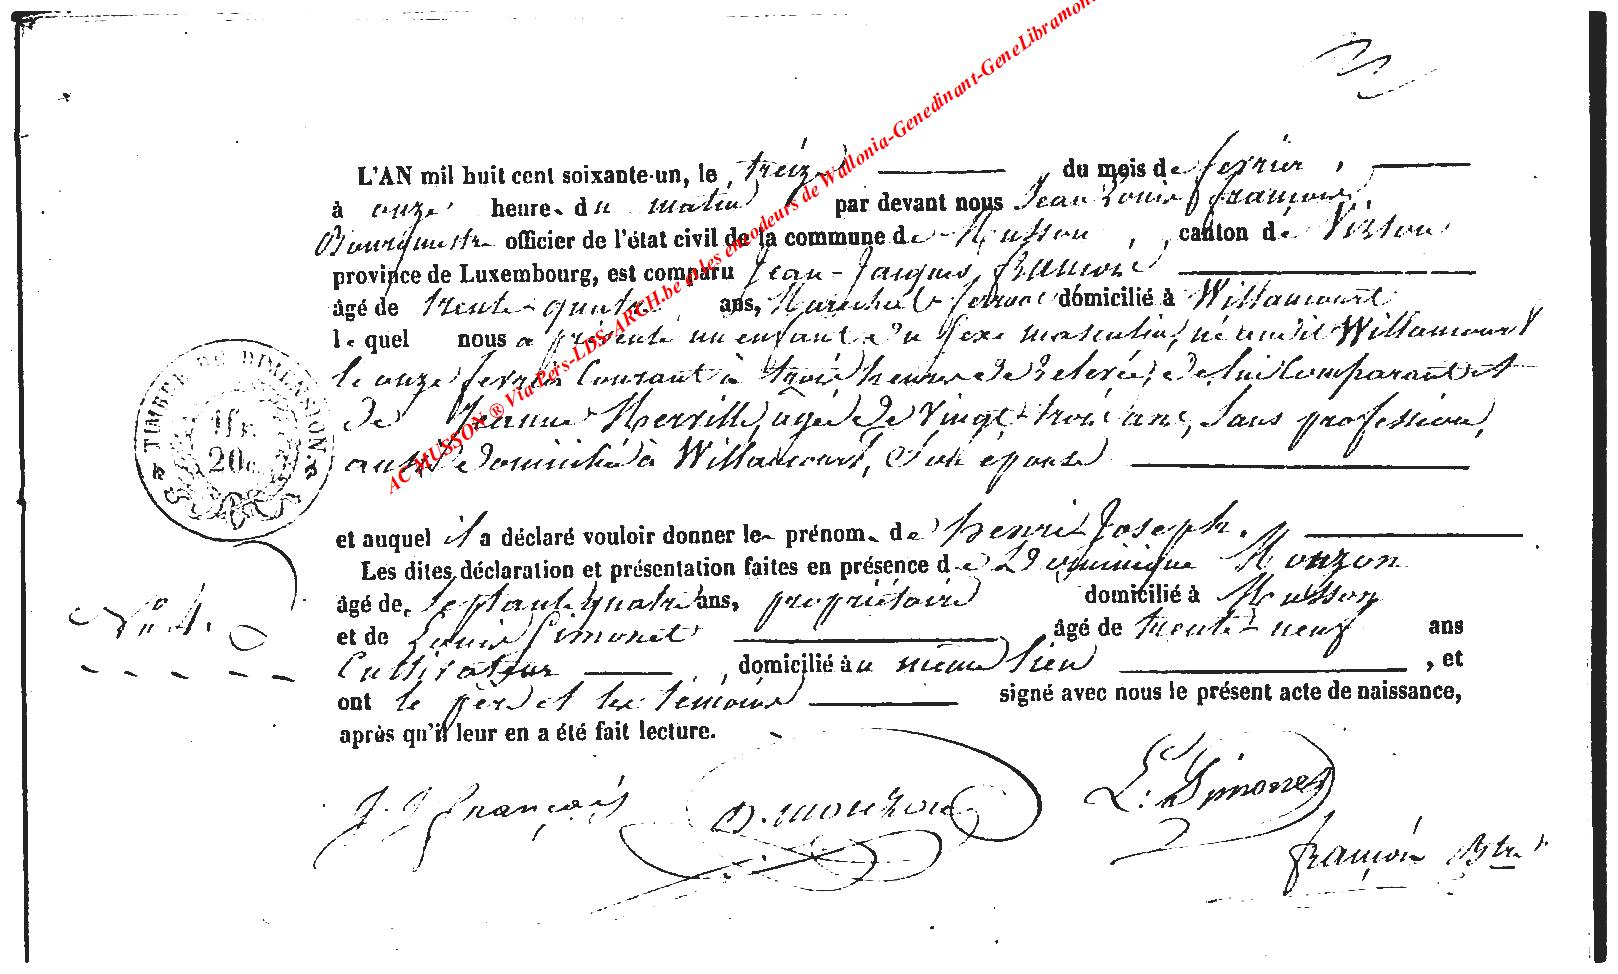 AC MUSSON ® Via Pers-LDS-ARCH.be et les encodeurs de Wallonia-Genedinant-GeneLibramont
L'AN mil huit cent soixante-un, le treize du mois de fevrier,
à onze heure du matin par devant nous Jean Louis françois,
Bourgmestre officier de l'état civil de la commune de Musson, canton de Virton
province de Luxembourg, est comparu Jean-Jacques françois
âgé de trente-quatre ans, Maréchal ferrant domicilié à Willancourt
lequel nous a présenté un enfant du sexe masculin, né audit Willancourt
le onze fevrier Courant à trois heures de relevée, de lui Comparant et
de Jeanne Merville, agée de vingt-trois ans, sans profession,
aussi domiciliée à Willancourt, son épouse
TIMBRE DE DIMENSION.
1 fr.
20c.
et auquel il a déclaré vouloir donner le prénom de henri Joseph.
Les dites déclaration et présentation faites en présence de Dominique Mouzon
âgé de septante quatre ans, propriétaire domicilié à Musson
No 4.
et de Louis Simonet âgé de trente-neuf ans
Cultivateur, domicilié au même lieu, et
ont le père et les témoins signé avec nous le présent acte de naissance,
après qu'il leur en a été fait lecture.
J. J. françois D. mouzon L. Simonet
françois Btre